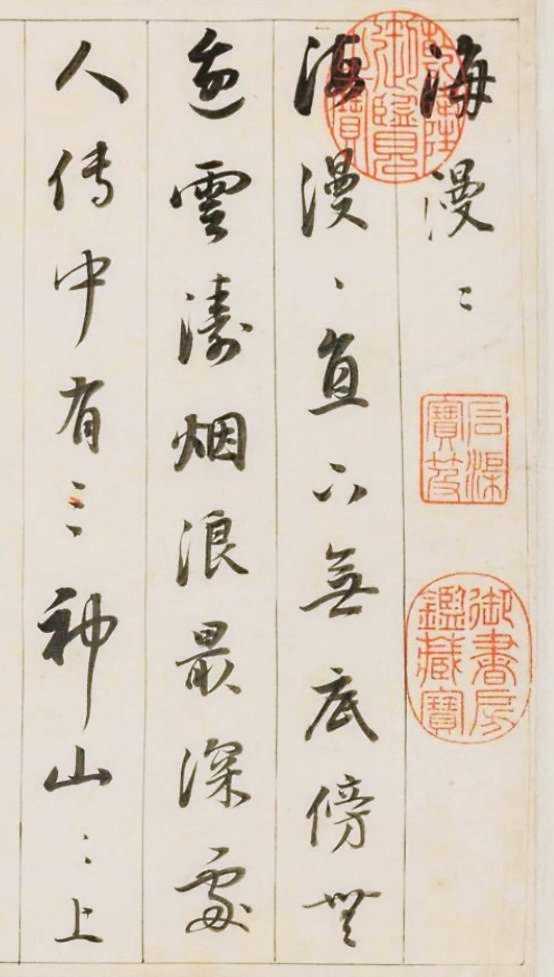 海漫〻
海漫〻直下無底傍無
邊雲濤烟浪最深處
人傳中有三神山〻上
乾隆御覽之寶
石渠寶笈
御書房鑑藏寶